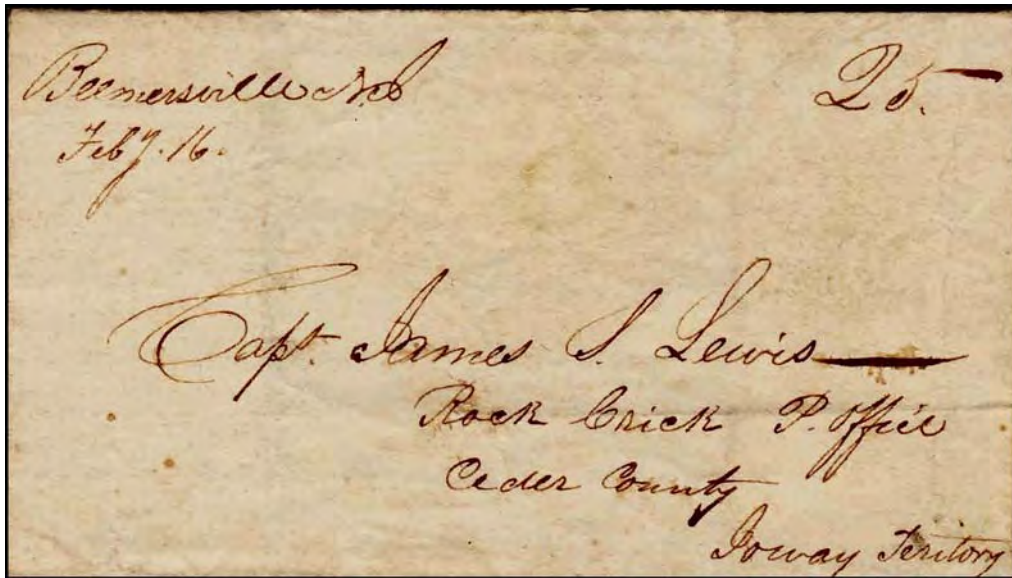 Beemersville N.J
25.
Feby. 16.
Capt. James S. Lewis
Rock Crick P. Office
Ceder County
Ioway Teritory